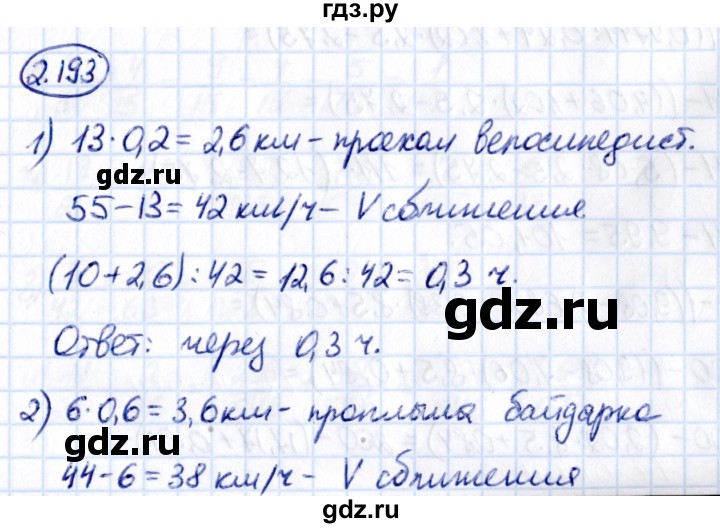 гдз.ру
2.193
1) 13·0,2=2,6 км – проехал велосипедист.
gdz.ru
55–13=42 км/ч – V сближения
(10+2,6):42=12,6:42=0,3 ч.
gdz.ru
Ответ: через 0,3 ч.
2) 6·0,6=3,6 км – проплыла байдарка
gdz.ru
44–6=38 км/ч – V сближения